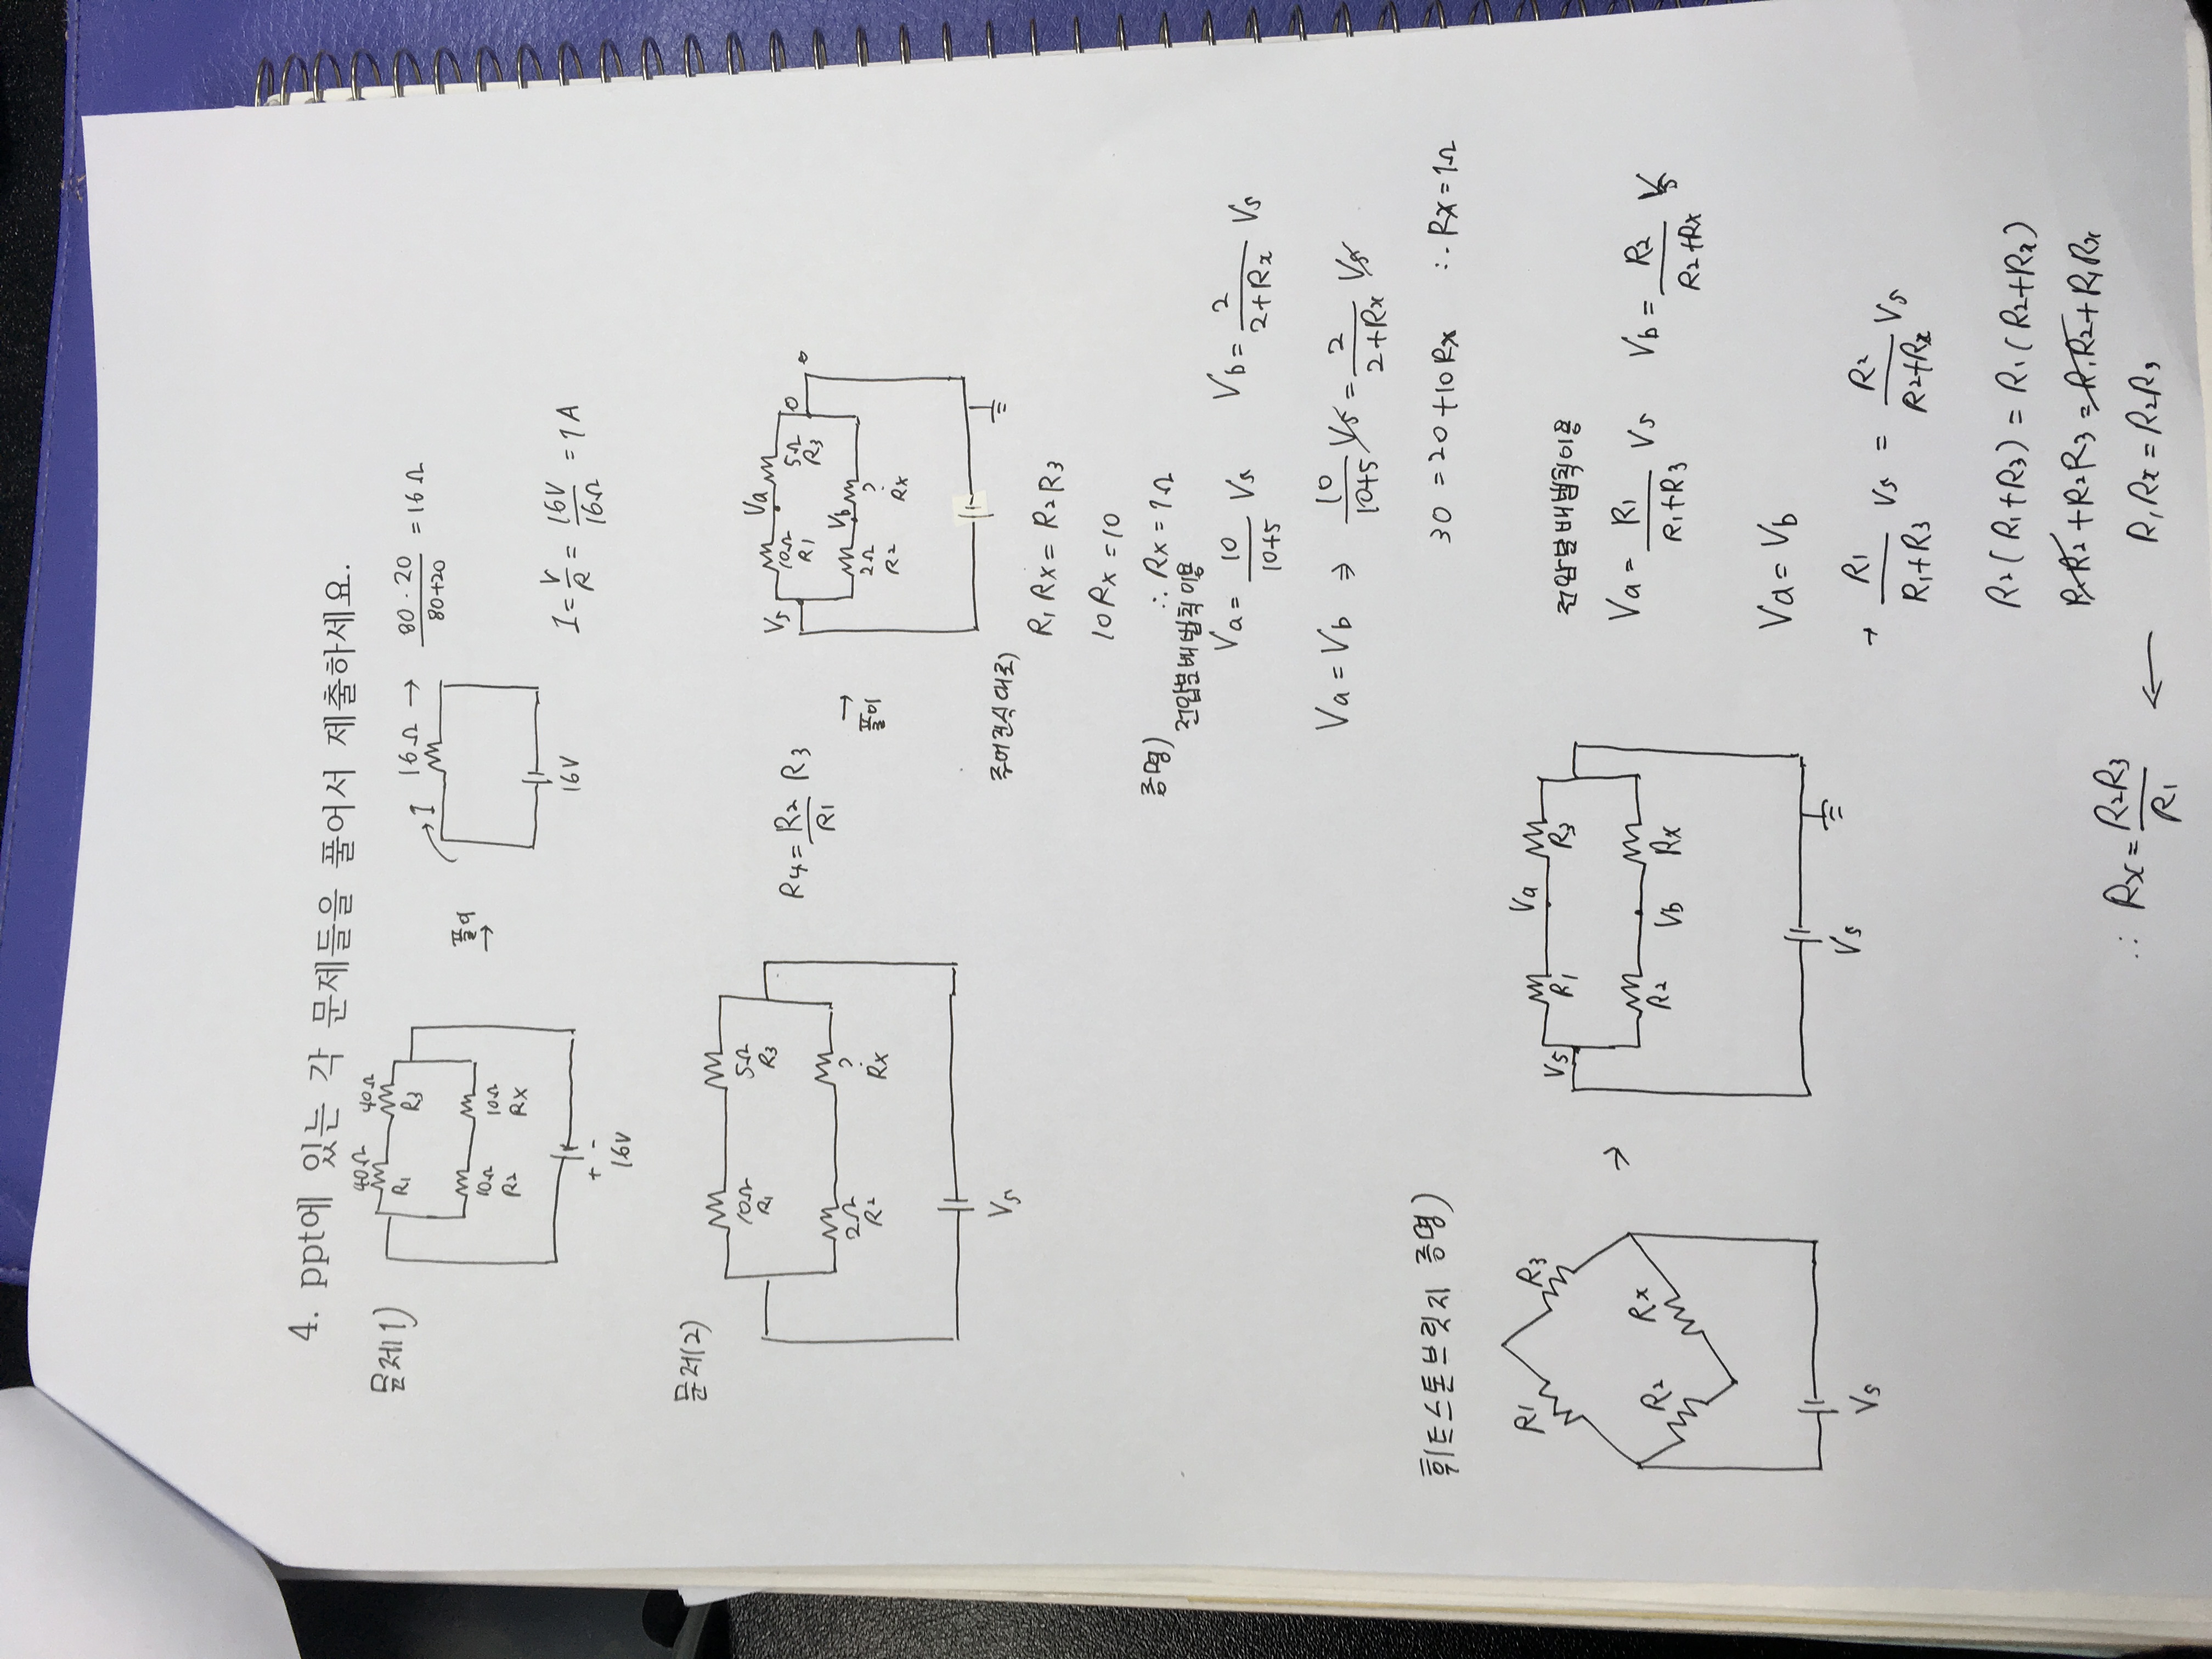 4. ppt에 있는 각 문제들을 풀어서 제출하세요.
문제1)
40Ω 40Ω
R1 R3
10Ω 10Ω
R2 Rx
+ -
16V
풀이
→
I 16Ω → 80 · 20 / 80+20 = 16Ω
16V
I = V/R = 16V/16Ω = 1A
문제(2)
10Ω 5Ω
R1 R3
2Ω ?
R2 Rx
Vs
R4 = R2/R1 R3
→
풀이
Vs Va
10Ω 5Ω 0
R1 R3
Vb
2Ω ?
R2 Rx
주어진식 대로)
R1 Rx = R2 R3
10 Rx = 10
증명) ∴ Rx = 1Ω
전압분배법칙 이용
Va = 10/10+5 Vs Vb = 2/2+Rx Vs
Va = Vb ⇒ 10/10+5 Vs = 2/2+Rx Vs
30 = 20+10Rx ∴ Rx = 1Ω
휘트스톤브릿지 증명)
R1 R3
R2 Rx
Vs
→
Vs Va
R1 R3
R2 Vb Rx
Vs
전압분배법칙이용
Va = R1/R1+R3 Vs Vb = R2/R2+Rx Vs
Va = Vb
→ R1/R1+R3 Vs = R2/R2+Rx Vs
R2(R1+R3) = R1(R2+Rx)
R1R2+R2R3 = R1R2+R1Rx
R1Rx = R2R3
∴ Rx = R2R3/R1 ←